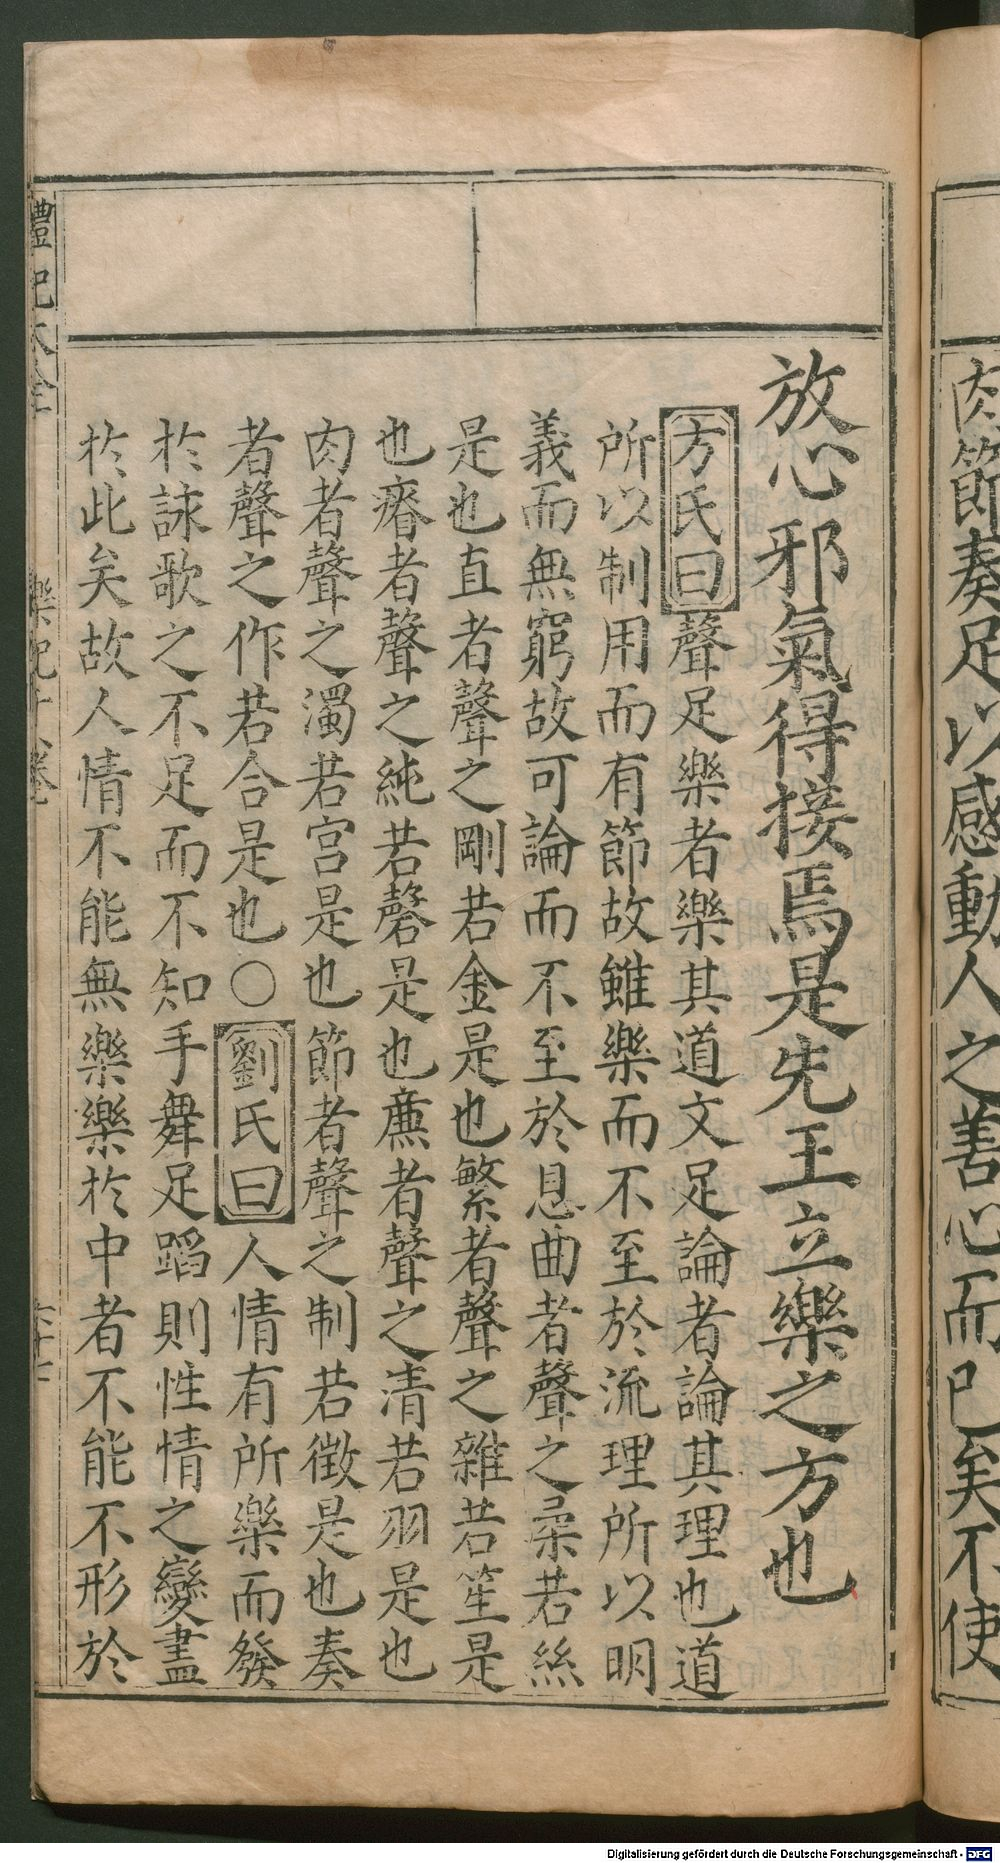 肉節奏足以感動人之善心而已矣不使
放心邪氣得接焉是先王立樂之方也
方氏曰聲足樂者樂其道文足論者論其理也道
所以制用而有節故雖樂而不至於流理所以明
義而無窮故可論而不至於息曲者聲之柔若絲
是也直者聲之剛若金是也繁者聲之雜若笙是
也瘠者聲之純若磬是也廉者聲之清若羽是也
肉者聲之濁若宮是也節者聲之制若徵是也奏
者聲之作若合是也○劉氏曰人情有所樂而發
於詠歌之不足而不知手舞足蹈則性情之變盡
於此矣故人情不能無樂樂於中者不能不形於
禮記大全
樂記十八卷
六十七
Digitalisierung gefördert durch die Deutsche Forschungsgemeinschaft - DFG